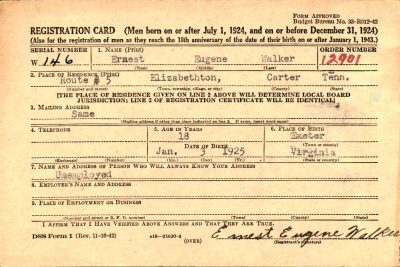 Form Approved
Budget Bureau No. 33-R012-42
REGISTRATION CARD (Men born on or after July 1, 1924, and on or before December 31, 1924)
(Also for the registration of men as they reach the 18th anniversary of the date of their birth on or after January 1, 1943.)
SERIAL NUMBER 1. NAME (Print) ORDER NUMBER
W 146 Ernest Eugene Walker 12901
(First) (Middle) (Last)
2. PLACE OF RESIDENCE (Print)
Route # 5 Elizabethton, Carter Tenn.
(Number and street) (Town, township, village, or city) (County) (State)
[THE PLACE OF RESIDENCE GIVEN ON LINE 2 ABOVE WILL DETERMINE LOCAL BOARD
JURISDICTION; LINE 2 OF REGISTRATION CERTIFICATE WILL BE IDENTICAL]
3. MAILING ADDRESS
Same
[Mailing address if other than place indicated on line 2. If same, insert word same]
4. TELEPHONE 5. AGE IN YEARS 6. PLACE OF BIRTH
18 Exeter
DATE OF BIRTH (Town or county)
Jan. 3 1925 Virginia
(Exchange) (Number) (Mo.) (Day) (Yr.) (State or country)
7. NAME AND ADDRESS OF PERSON WHO WILL ALWAYS KNOW YOUR ADDRESS
Unemployed
8. EMPLOYER'S NAME AND ADDRESS
9. PLACE OF EMPLOYMENT OR BUSINESS
(Number and street or R. F. D. number) (Town) (County) (State)
I AFFIRM THAT I HAVE VERIFIED ABOVE ANSWERS AND THAT THEY ARE TRUE.
DSS Form 1 (Rev. 11-16-42) (OVER) Ernest Eugene Walker
(Registrant's signature)